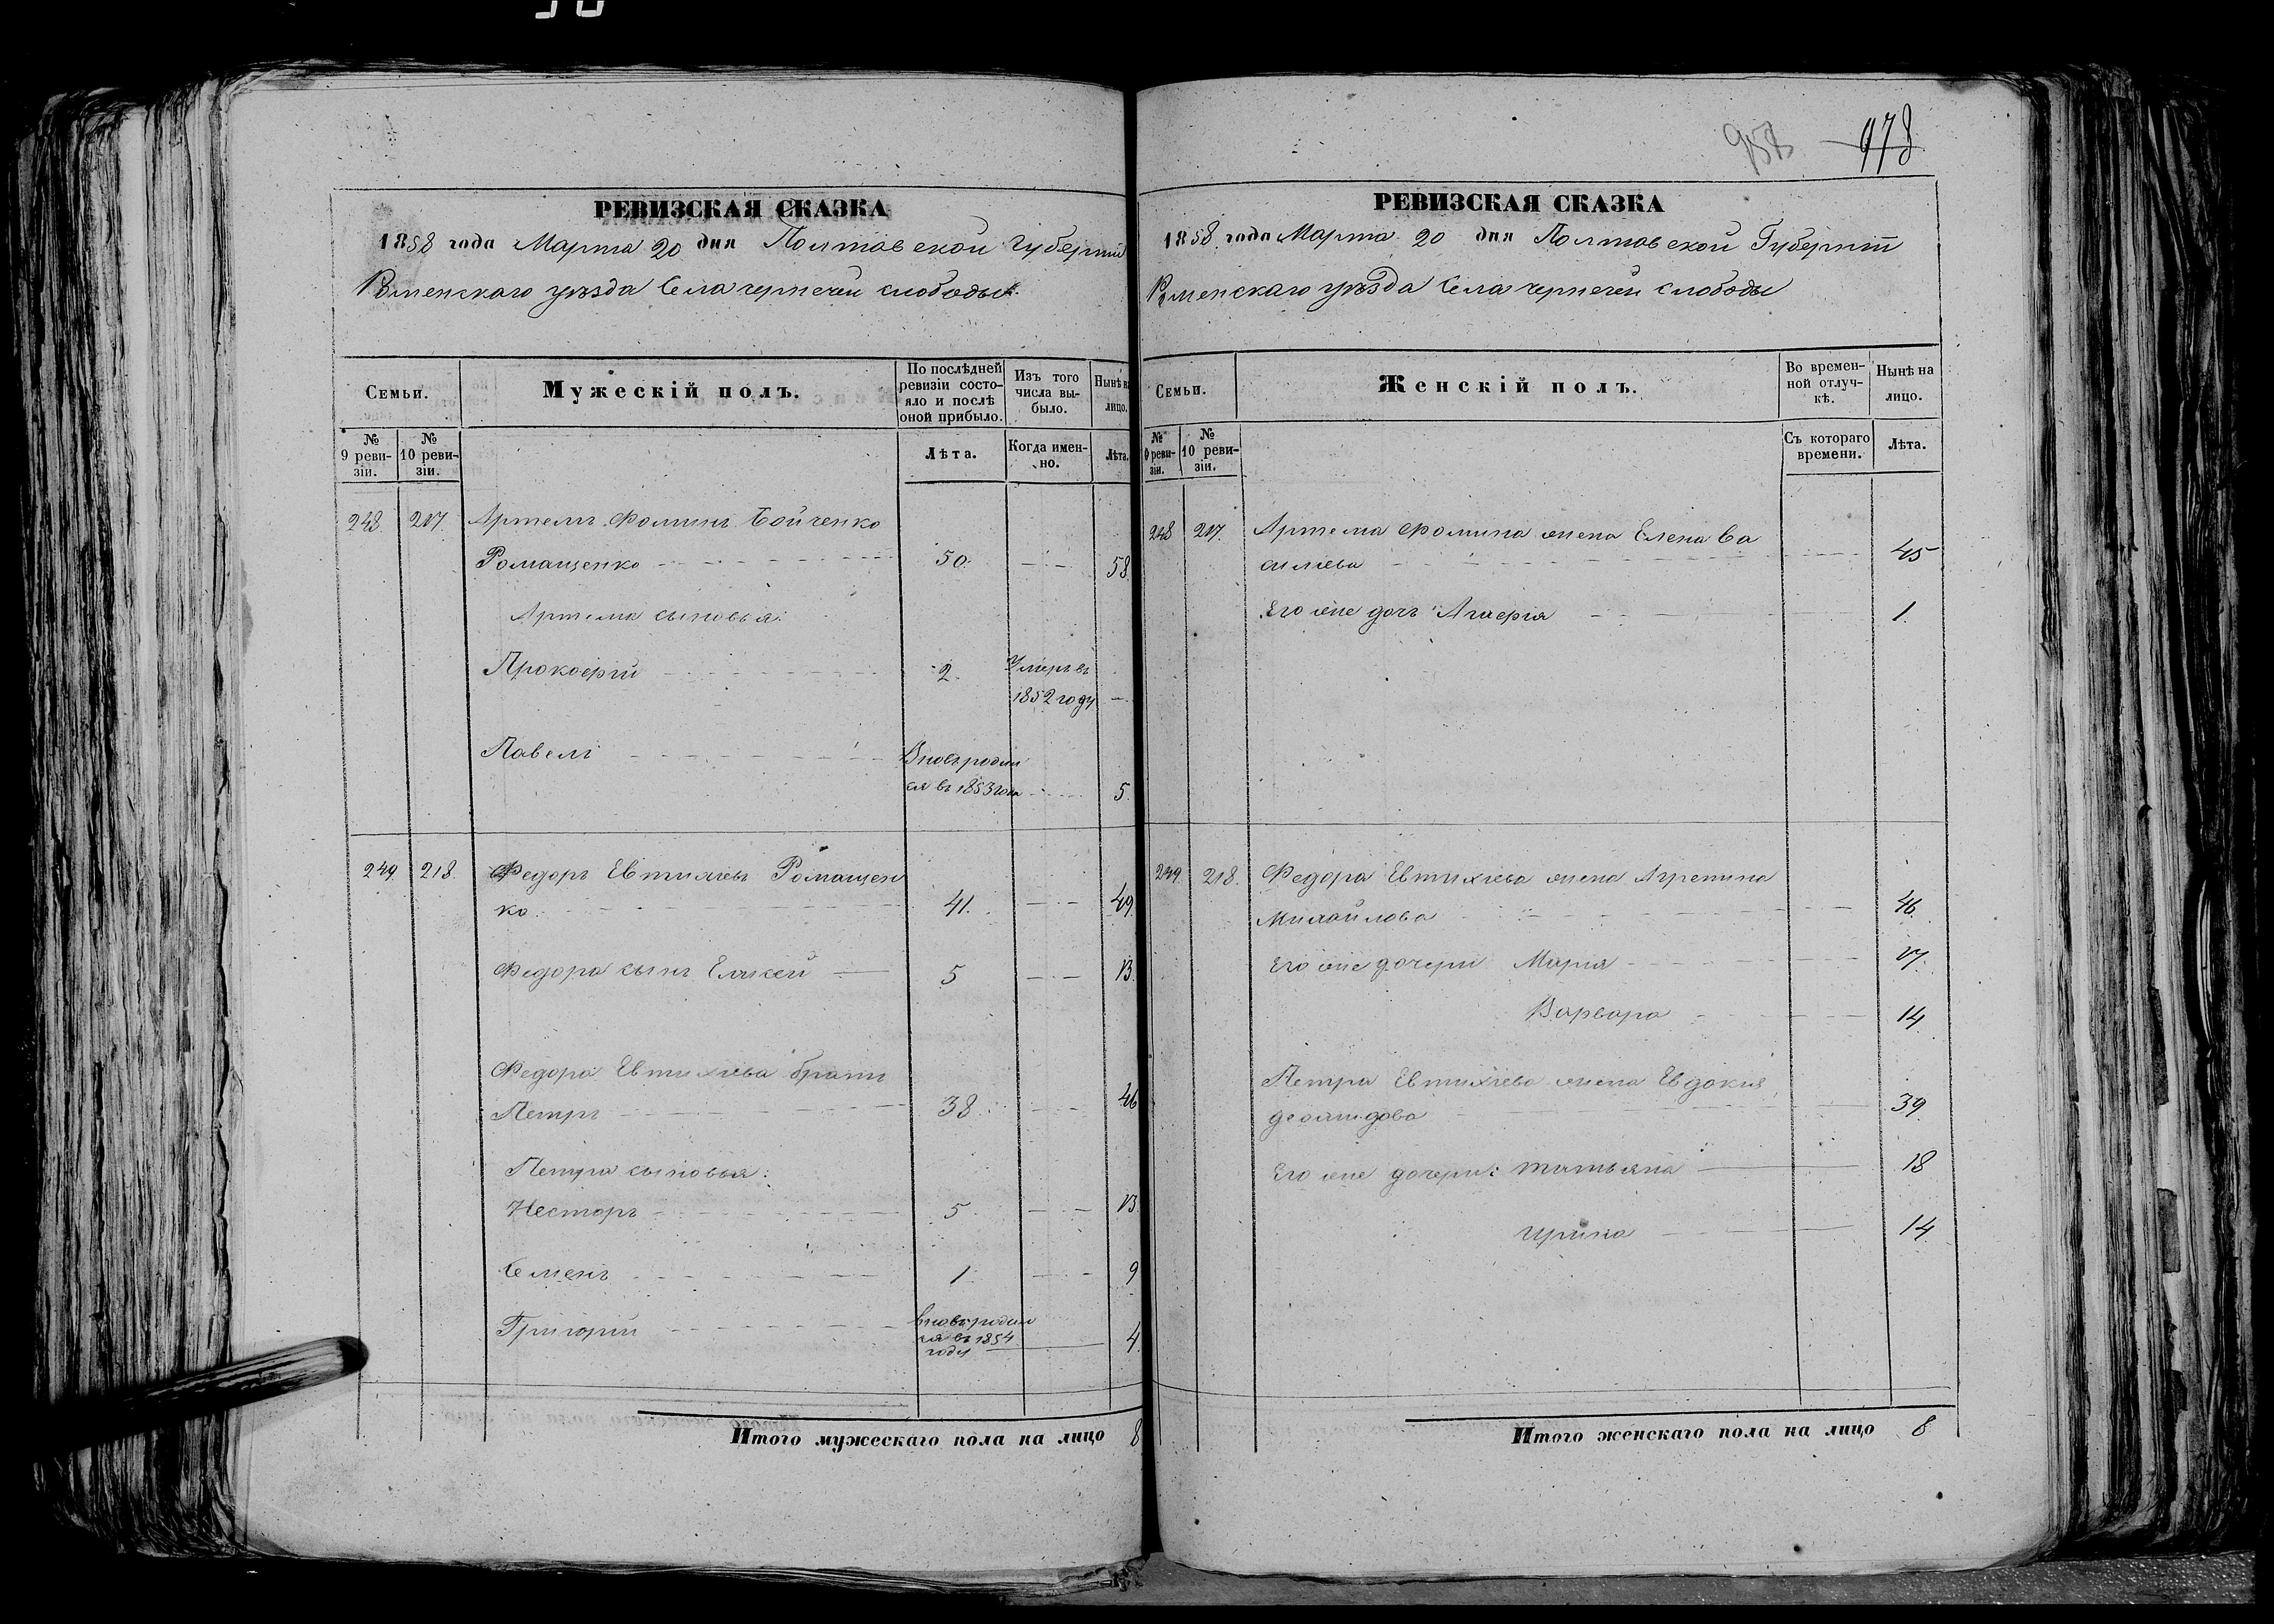 958 978
РЕВИЗСКАЯ СКАЗКА
1858 года Марта 20 дня Полтавской Губерніи
Роменскаго уѣзда Села чернечей слободы
Семьи.
Мужескій полъ.
По послѣдней ревизіи состояло и послѣ оной прибыло.
Изъ того числа выбыло.
Нынѣ на лицо.
№ 9 ревизіи.
№ 10 ревизіи.
Лѣта.
Когда именно.
Лѣта.
248 217. Артемъ Фоминъ Бойченко
Романценко 50. 58
Артема сыновья:
Прокофій 2. Умеръ въ
1852 году
Павелъ Вновь родил
ся въ 1853 года 5.
249. 218. Федоръ Евтихіевъ Романцен
ко. 41. 49.
Федора сынъ Елисей 5 13.
Федора Евтихіева братъ
Петръ 38 46
Петра сыновья:
Несторъ 5 13.
Семенъ 1. 9
Григорій вновь родил
ся въ 1854
году 4.
Итого мужескаго пола на лицо 8
РЕВИЗСКАЯ СКАЗКА
1858 года Марта 20 дня Полтавской Губерніи
Роменскаго уѣзда Села чернечей слободы
Семьи.
Женскій полъ.
Во временной отлучкѣ.
Нынѣ на лицо.
№ 9 ревизіи.
№ 10 ревизіи.
Съ котораго времени.
Лѣта.
248 217. Артема Фомина жена Елена Ва
силіева 45
Его же дочъ Агафія 1.
249. 218. Федора Евтихіева жена Агрепина
Михайлова 46.
Его же дочери Марія 17.
Варвара 14
Петра Евтихіева жена Евдокія
39
Его же дочери: татьяна 18
ирина 14
Итого женскаго пола на лицо 8